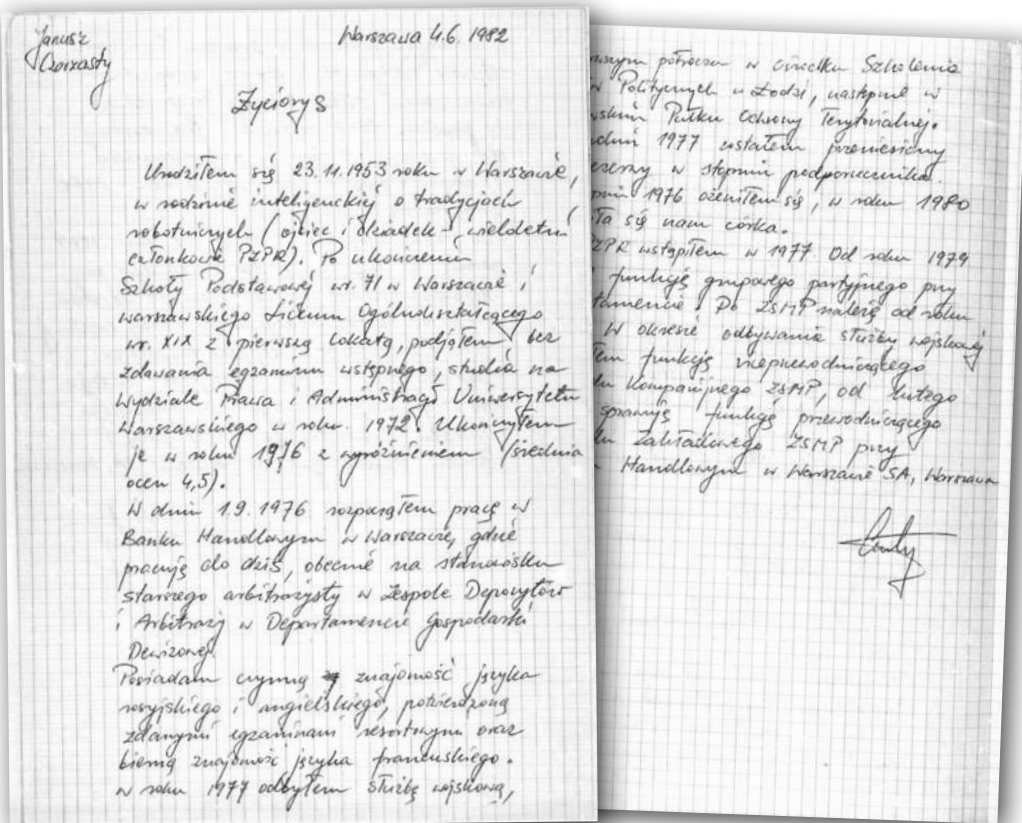 Janusz
Czarzasty
Warszawa 4.6. 1982
Życiorys
Urodziłem się 23.11.1953 roku w Warszawie,
w rodzinie inteligenckiej o tradycjach
robotniczych (ojciec i dziadek - wieloletni
członkowie PZPR). Po ukończeniu
Szkoły Podstawowej nr. 71 w Warszawie i
warszawskiego Liceum Ogólnokształcącego
nr. XIX z pierwszą lokatą, podjąłem bez
zdawania egzaminu wstępnego, studia na
Wydziale Prawa i Administracji Uniwersytetu
Warszawskiego w roku 1972. Ukończyłem
je w roku 1976 z wyróżnieniem (średnia
ocen 4,5).
W dniu 1.9.1976 rozpocząłem pracę w
Banku Handlowym w Warszawie, gdzie
pracuję do dziś, obecnie na stanowisku
starszego arbitrażysty w Zespole Depozytów
i Arbitraży w Departamencie Gospodarki
Dewizowej.
Posiadam czynną znajomość języka
rosyjskiego i angielskiego, potwierdzoną
zdanymi egzaminami resortowym oraz
bierną znajomość języka francuskiego.
W roku 1977 odbyłem służbę wojskową,
półroczu w Ośrodku Szkolenia
Politycznych w Łodzi, następnie w
Pułku Ochrony Terytorialnej.
1977 zostałem przeniesiony
w stopniu podporucznika.
1976 ożeniłem się, w roku 1980
się nam córka.
PZPR wstąpiłem w 1977. Od roku 1979
funkcję grupowego partyjnego przy
Do ZSMP należę od roku
W okresie odbywania służby wojskowej
funkcję wiceprzewodniczącego
Kompanijnego ZSMP, od lutego
sprawuję funkcję przewodniczącego
Zakładowego ZSMP przy
Handlowym w Warszawie SA, Warszawa